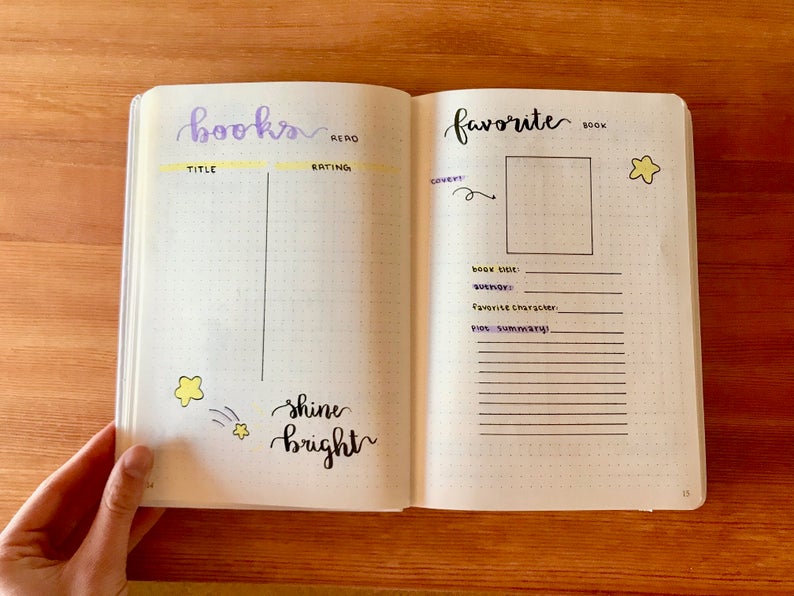 books READ
TITLE RATING
shine
bright
14
favorite BOOK
cover!
book title:
author:
favorite character:
plot summary!
15